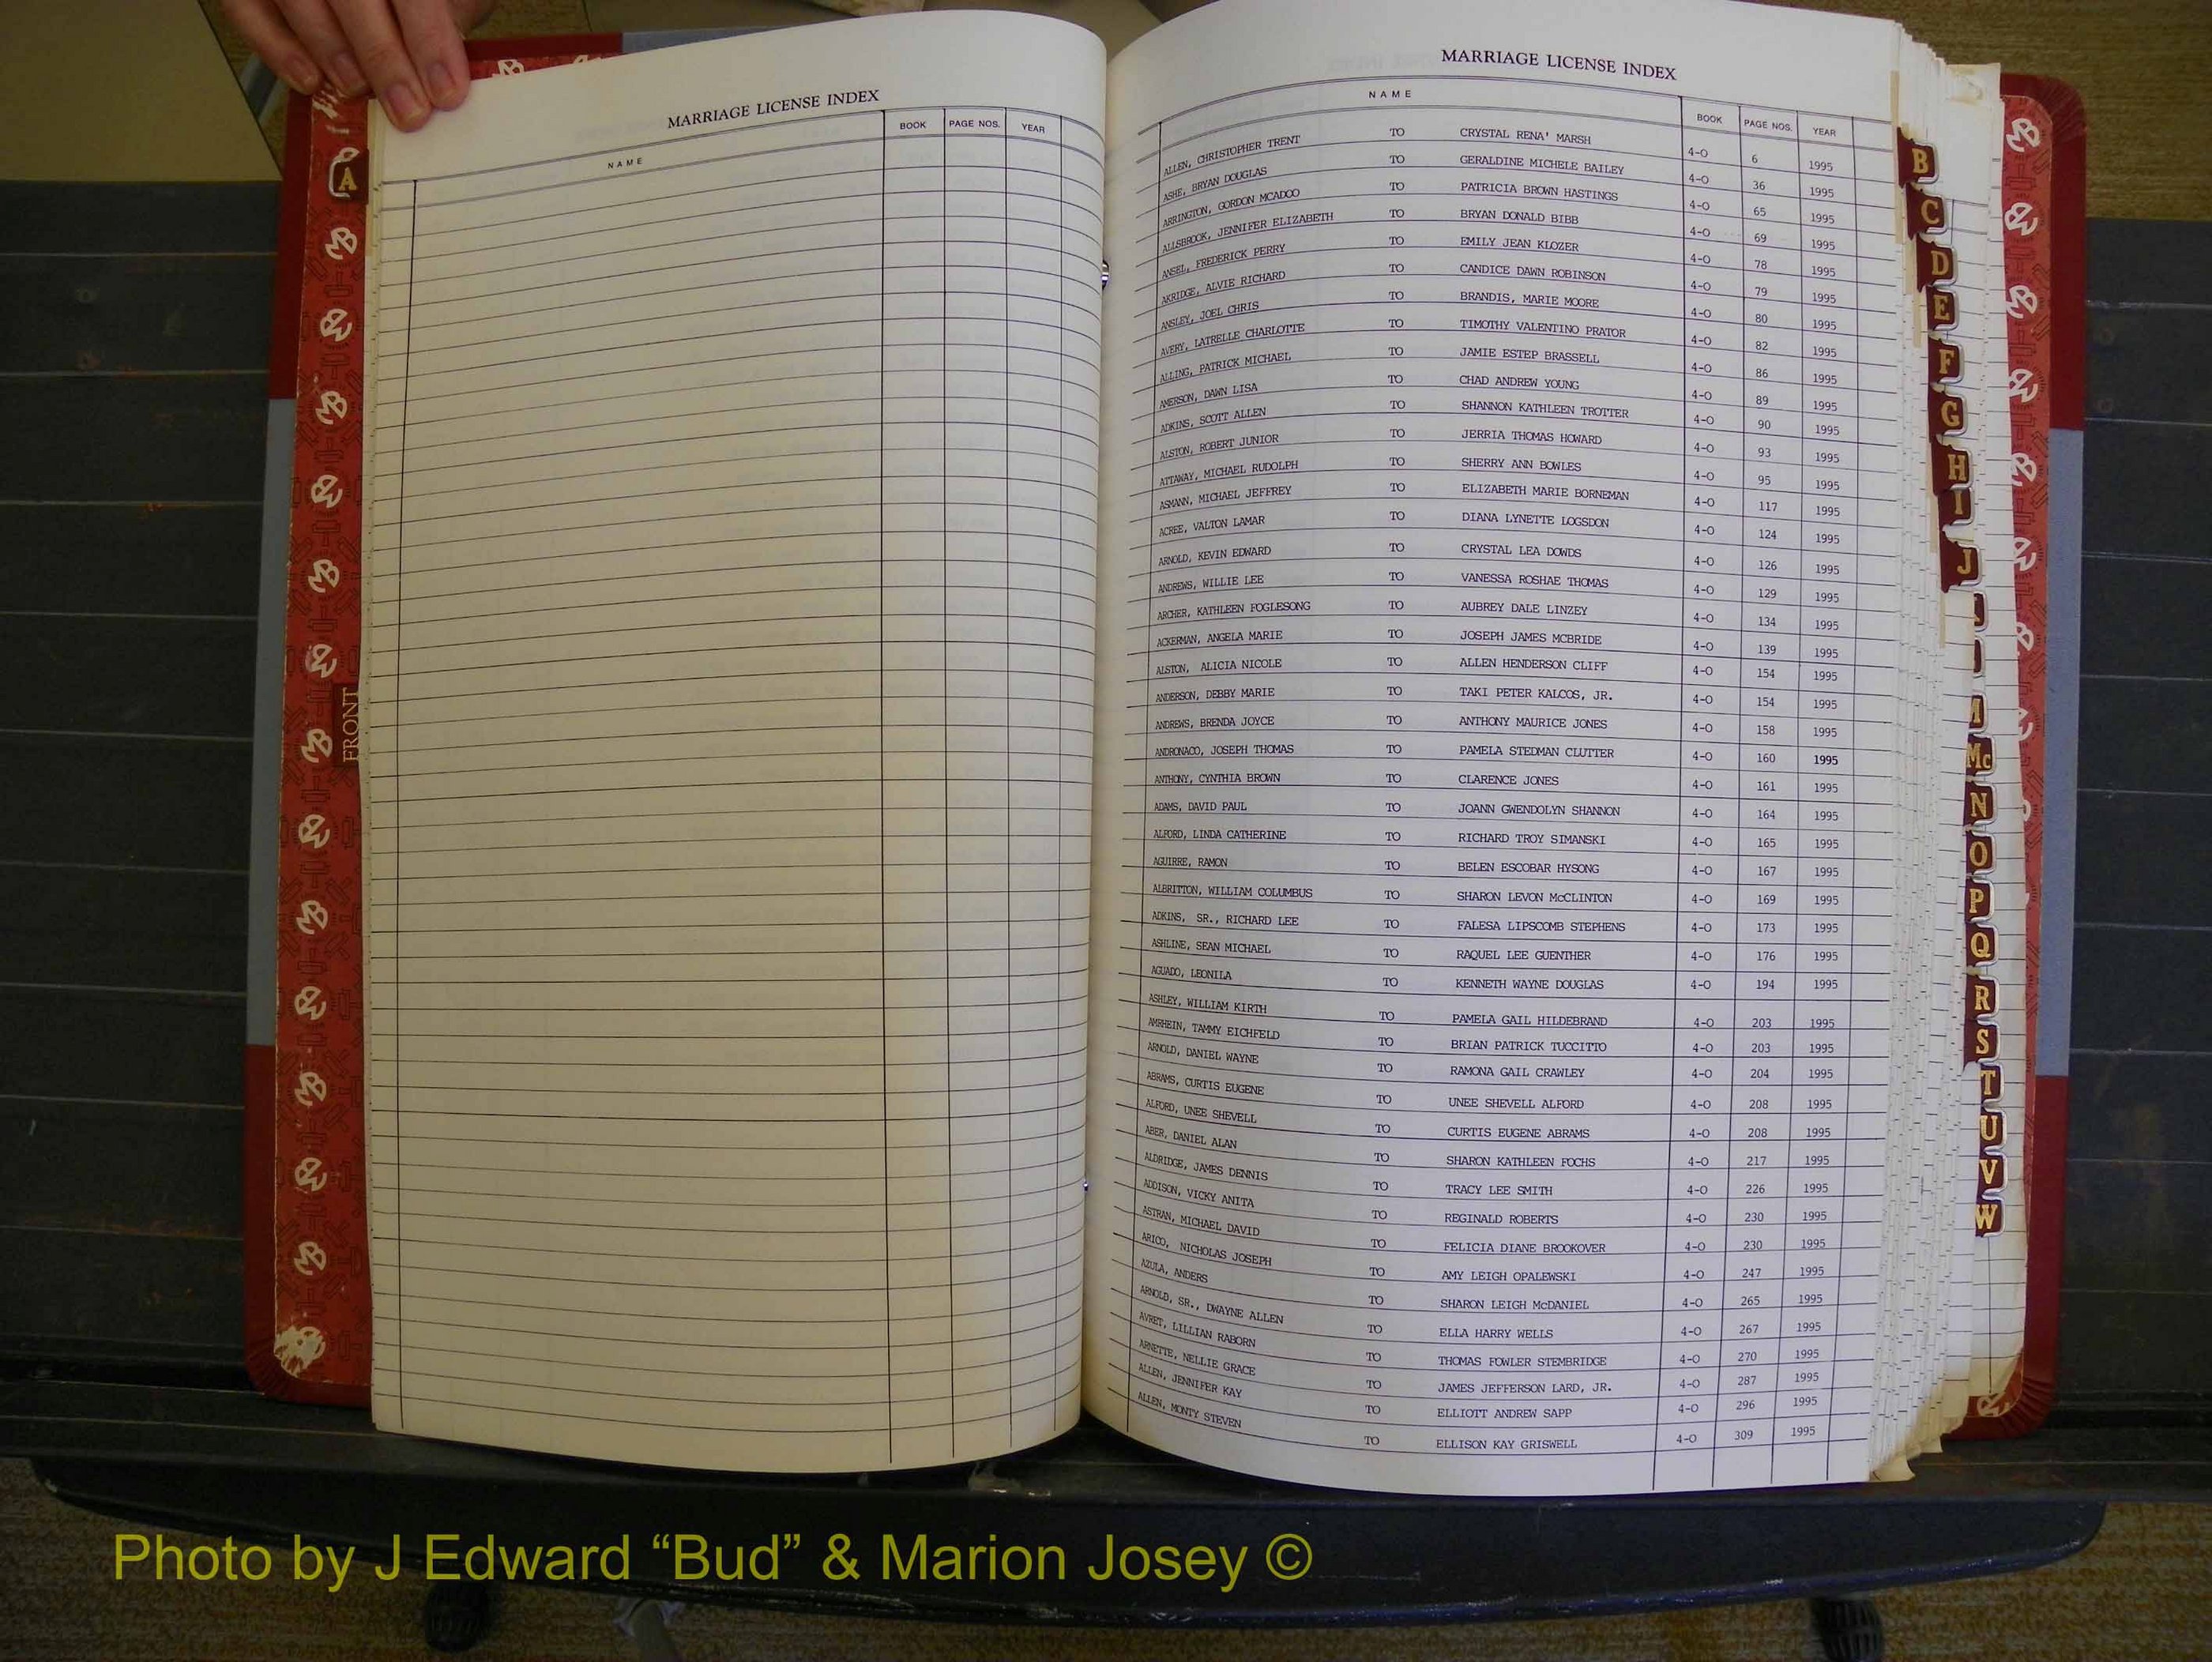 MARRIAGE LICENSE INDEX
NAME BOOK PAGE NOS. YEAR
A
FRONT
MARRIAGE LICENSE INDEX
NAME BOOK PAGE NOS. YEAR
ALLEN, CHRISTOPHER TRENT TO CRYSTAL RENA' MARSH 4-O 6 1995
ASHE, BRYAN DOUGLAS TO GERALDINE MICHELE BAILEY 4-O 36 1995
ARRINGTON, GORDON MCADOO TO PATRICIA BROWN HASTINGS 4-O 65 1995
ALLSBROOK, JENNIFER ELIZABETH TO BRYAN DONALD BIBB 4-O 69 1995
ANSEL, FREDERICK PERRY TO EMILY JEAN KLOZER 4-O 78 1995
AKRIDGE, ALVIE RICHARD TO CANDICE DAWN ROBINSON 4-O 79 1995
ANSLEY, JOEL CHRIS TO BRANDIS, MARIE MOORE 4-O 80 1995
AVERY, LATRELLE CHARLOTTE TO TIMOTHY VALENTINO PRATOR 4-O 82 1995
ALLING, PATRICK MICHAEL TO JAMIE ESTEP BRASSELL 4-O 86 1995
AMERSON, DAWN LISA TO CHAD ANDREW YOUNG 4-O 89 1995
ADKINS, SCOTT ALLEN TO SHANNON KATHLEEN TROTTER 4-O 90 1995
ALSTON, ROBERT JUNIOR TO JERRIA THOMAS HOWARD 4-O 93 1995
ATTAWAY, MICHAEL RUDOLPH TO SHERRY ANN BOWLES 4-O 95 1995
ASMANN, MICHAEL JEFFREY TO ELIZABETH MARIE BORNEMAN 4-O 117 1995
ACREE, VALTON LAMAR TO DIANA LYNETTE LOGSDON 4-O 124 1995
ARNOLD, KEVIN EDWARD TO CRYSTAL LEA DOWDS 4-O 126 1995
ANDREWS, WILLIE LEE TO VANESSA ROSHAE THOMAS 4-O 129 1995
ARCHER, KATHLEEN FOGLESONG TO AUBREY DALE LINZEY 4-O 134 1995
ACKERMAN, ANGELA MARIE TO JOSEPH JAMES MCBRIDE 4-O 139 1995
ALSTON, ALICIA NICOLE TO ALLEN HENDERSON CLIFF 4-O 154 1995
ANDERSON, DEBBY MARIE TO TAKI PETER KALCOS, JR. 4-O 154 1995
ANDREWS, BRENDA JOYCE TO ANTHONY MAURICE JONES 4-O 158 1995
ANDRONACO, JOSEPH THOMAS TO PAMELA STEDMAN CLUTTER 4-O 160 1995
ANTHONY, CYNTHIA BROWN TO CLARENCE JONES 4-O 161 1995
ADAMS, DAVID PAUL TO JOANN GWENDOLYN SHANNON 4-O 164 1995
ALFORD, LINDA CATHERINE TO RICHARD TROY SIMANSKI 4-O 165 1995
AGUIRRE, RAMON TO BELEN ESCOBAR HYSONG 4-O 167 1995
ALBRITTON, WILLIAM COLUMBUS TO SHARON LEVON McCLINTON 4-O 169 1995
ADKINS, SR., RICHARD LEE TO FALESA LIPSCOMB STEPHENS 4-O 173 1995
ASHLINE, SEAN MICHAEL TO RAQUEL LEE GUENTHER 4-O 176 1995
AGUADO, LEONILA TO KENNETH WAYNE DOUGLAS 4-O 194 1995
ASHLEY, WILLIAM KIRTH TO PAMELA GAIL HILDEBRAND 4-O 203 1995
AMRHEIN, TAMMY EICHFELD TO BRIAN PATRICK TUCCITTO 4-O 203 1995
ARNOLD, DANIEL WAYNE TO RAMONA GAIL CRAWLEY 4-O 204 1995
ABRAMS, CURTIS EUGENE TO UNEE SHEVELL ALFORD 4-O 208 1995
ALFORD, UNEE SHEVELL TO CURTIS EUGENE ABRAMS 4-O 208 1995
ABER, DANIEL ALAN TO SHARON KATHLEEN FOCHS 4-O 217 1995
ALDRIDGE, JAMES DENNIS TO TRACY LEE SMITH 4-O 226 1995
ADDISON, VICKY ANITA TO REGINALD ROBERTS 4-O 230 1995
ASTRAN, MICHAEL DAVID TO FELICIA DIANE BROOKOVER 4-O 230 1995
ARICO, NICHOLAS JOSEPH TO AMY LEIGH OPALEWSKI 4-O 247 1995
AZULA, ANDERS TO SHARON LEIGH McDANIEL 4-O 265 1995
ARNOLD, SR., DWAYNE ALLEN TO ELLA HARRY WELLS 4-O 267 1995
AVRET, LILLIAN RABORN TO THOMAS FOWLER STEMBRIDGE 4-O 270 1995
ARNETTE, NELLIE GRACE TO JAMES JEFFERSON LARD, JR. 4-O 287 1995
ALLEN, JENNIFER KAY TO ELLIOTT ANDREW SAPP 4-O 296 1995
ALLEN, MONTY STEVEN TO ELLISON KAY GRISWELL 4-O 309 1995
B
C
D
E
F
G
H
I
J
M
Mc
N
O
P
Q
R
S
T
U
V
W
Photo by J Edward “Bud” & Marion Josey ©